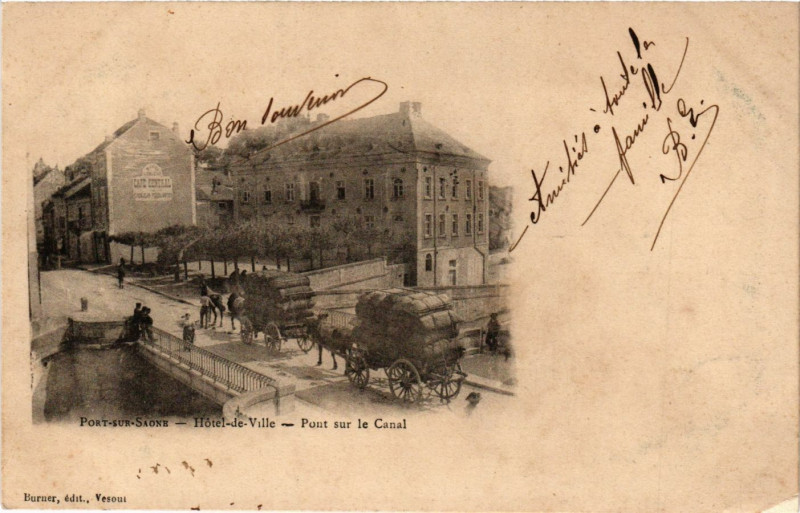 Bon Souvenir
Amitiés à toute la
famille
B. E.
CAFÉ CENTRAL
PORT-SUR-SAONE — Hôtel-de-Ville — Pont sur le Canal
Burner, édit., Vesoul